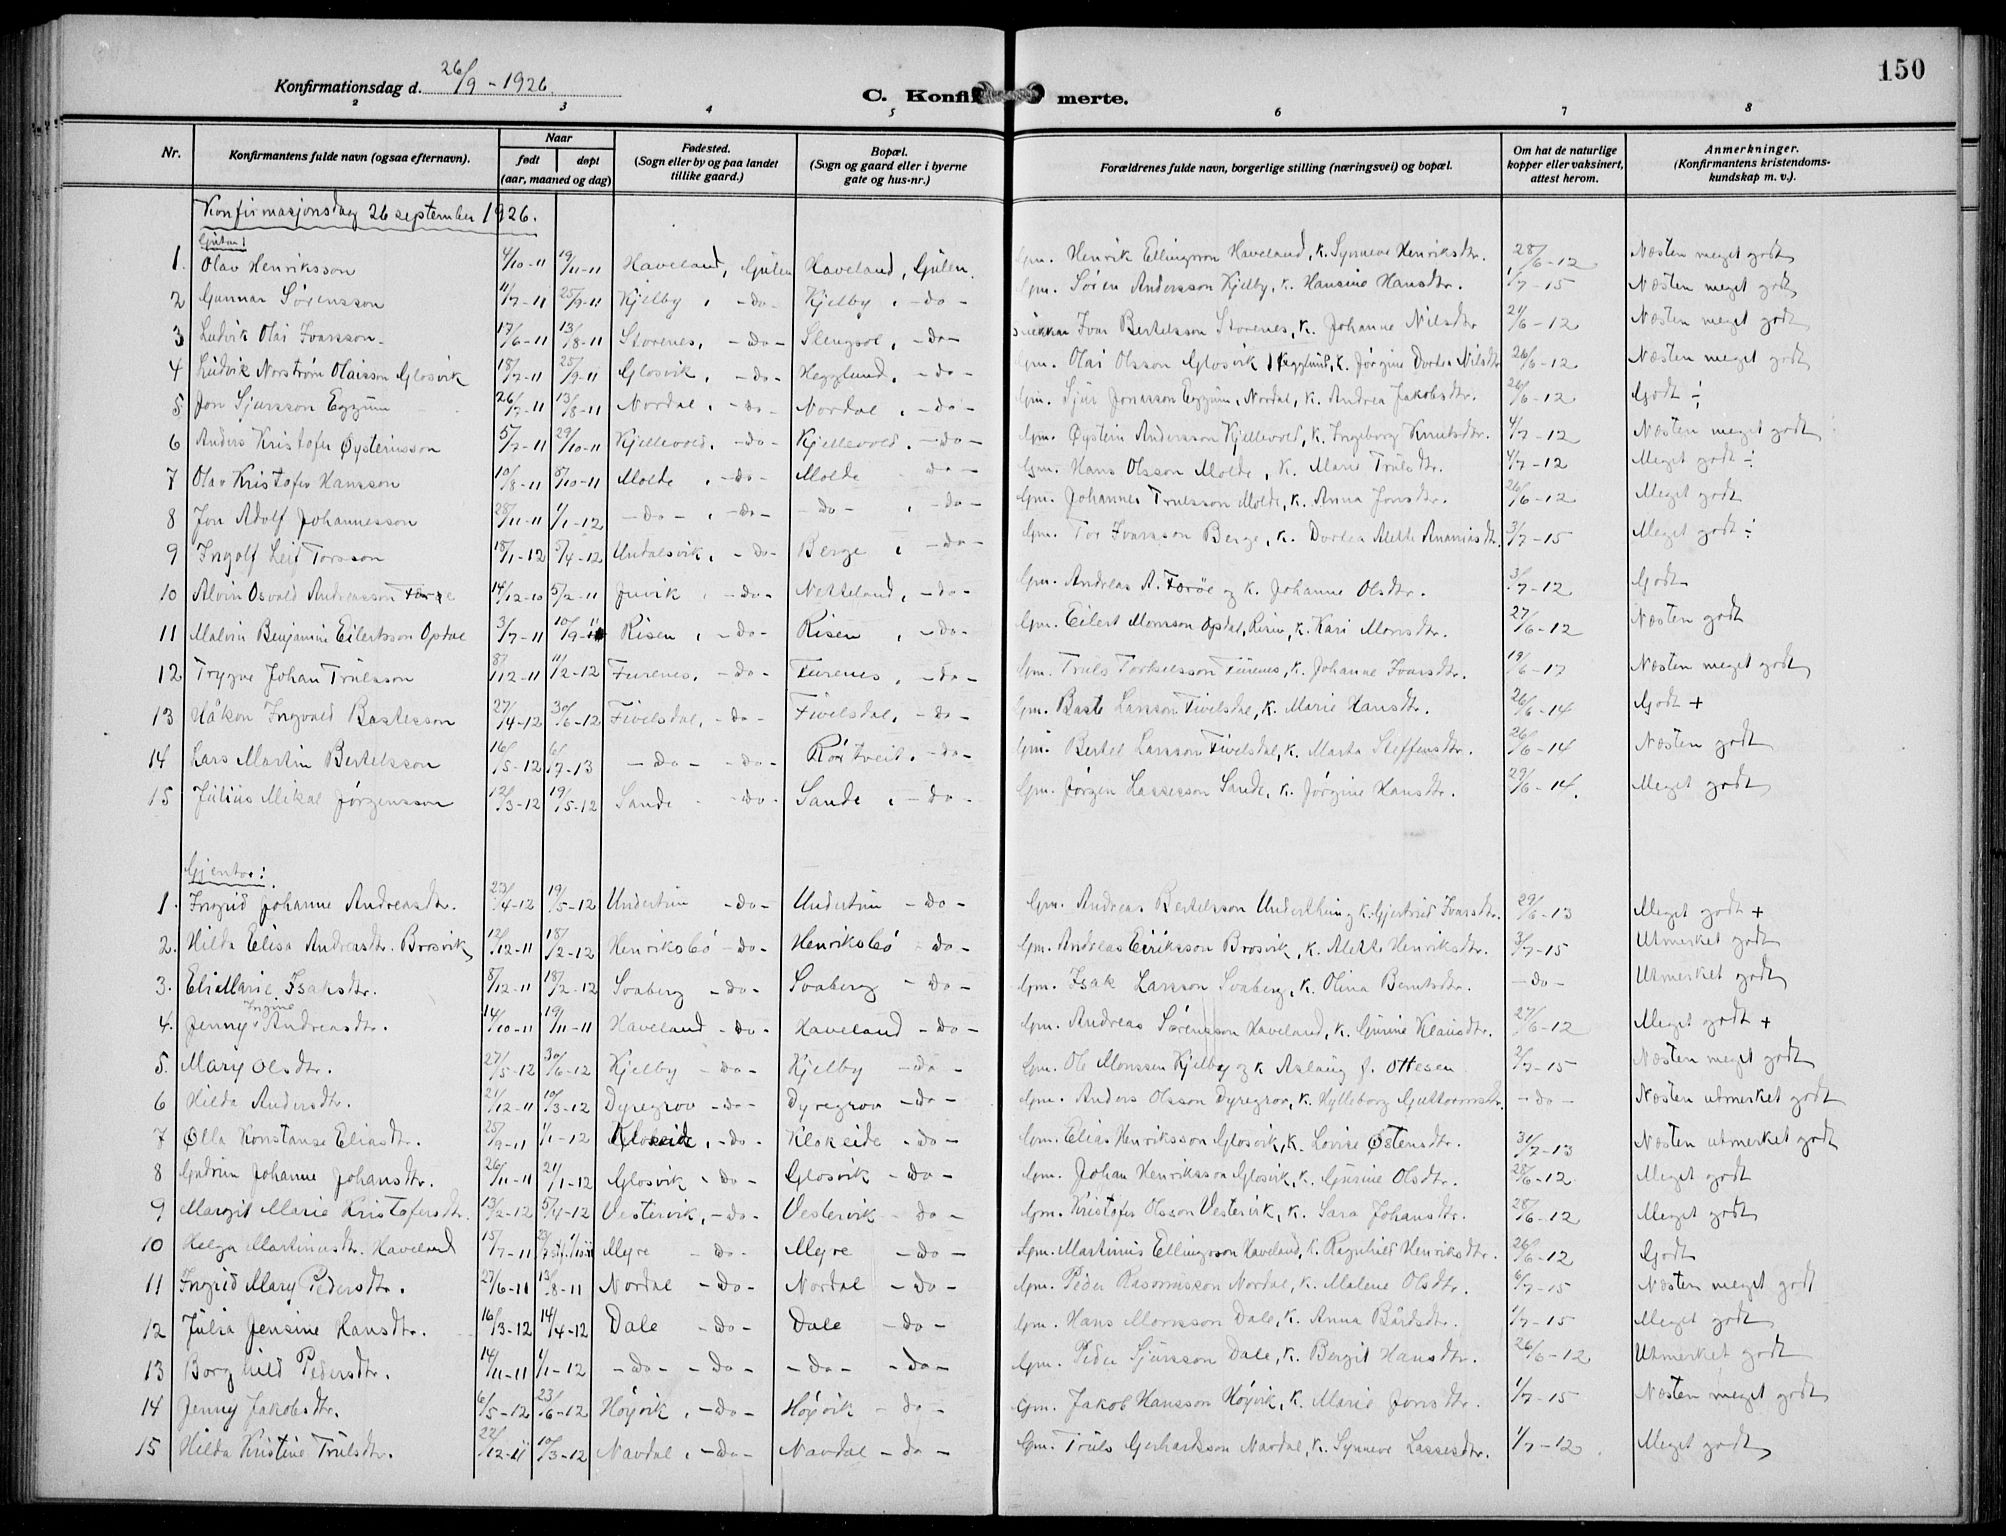 150
Konfirmationsdag d. 26/9 - 1926
C. Konfirmerte.
2 3 4 5 6 7 8
Nr. Konfirmantens fulde navn (ogsaa efternavn). Naar født døpt (aar, maaned og dag) Fødested. (Sogn eller by og paa landet tillike gaard.) Bopæl. (Sogn og gaard eller i byerne gate og hus-nr.) Forældrenes fulde navn, borgerlige stilling (næringsvei) og bopæl. Om hat de naturlige kopper eller vaksinert, attest herom. Anmerkninger. (Konfirmantens kristendoms-kundskap m. v.).
Konfirmasjonsdag 26 september 1926.
Gutar:
1. Olav Henriksson 4/10-11 19/11-11 Haveland, Gulen Haveland, Gulen. Gm. Henrik Ellingsson Haveland, k. Synneve Henriksdtr. 28/6-12 Næsten meget godt
2 Gunnar Sørensson 11/7-11 25/9-11 Kjelby, -do- Kjelby, -do- Gm. Søren Andersson Kjelby, k. Hansine Hansdtr. 1/7-15 Næsten meget godt
3 Ludvik Olai Ivarsson 17/6-11 13/8-11 Storenes, -do- Slengsol, -do- Ivar Bertelsson Storenes, k. Johanne Nilsdtr 21/6-12 Næsten meget godt
4 Ludvik Norstrøm Olaisson Glosvik 18/7-11 25/9-11 Glosvik, -do- Hegglund, -do- Gm. Olai Olsson Glosvik, Hegglund, k. Jørgine Dortea Nilsdtr 26/6-12 Næsten meget godt
5 Jon Sjursson Eggum 26/7-11 13/8-11 Nordal, -do- Nordal, -do- Gm. Sjur Jonasson Eggum, Nordal, k. Andrea Jakobsdtr. 26/6-12 Godt ÷
6 Anders Kristofer Øysteinsson 5/7-11 29/10-11 Kjellevold, -do- Kjellevold, -do- Gm. Øystein Andersson Kjellevold, k. Ingeborg Knutsdtr. 4/7-12 Næsten meget godt
7 Olav Kristofer Hansson 10/8-11 8/10-11 Molde, -do- Molde do- Gm. Hans Olsson Molde, k. Marie Trulsdtr. 4/7-12 Meget godt ÷
8 Jon Adolf Johannesson 28/11-11 1/1-12 -do-, -do- -do-, -do- Gm. Johannes Trulsson Molde, k. Anna Jonsdtr. 26/6-12 Meget godt
9 Ingolf Leif Torsson 18/1-12 8/4-12 Undalsvik, -do- Berge, -do- Gm. Tor Ivarsson Berge, k. Dortea Alette Ananiasdtr. 3/7-15 Meget godt ÷
10 Alvin Osvald Andreasson Færøe 14/12-10 5/2-11 Juvik, -do- Netteland, -do- Gm. Andreas A. Færøe og k. Johanne Olsdtr. 3/7-12 Godt
11 Malvin Benjamin Eilertsson Opdal 3/7-11 10/9-11 Risen, -do- Risen, -do- Gm. Eilert Monsson Opdal, Risen, k. Kari Monsdtr. 27/6-12 Næsten godt
12 Trygve Johan Trulsson 8/12-11 11/2-12 Furenes, -do- Furenes, -do- Gm. Truls Torkelsson Furenes, k. Johanne Ivarsdtr. 19/6-17 Næsten meget godt
13 Håkon Ingvald Bastesson 27/4-12 30/6-12 Fivelsdal, -do- Fivelsdal, -do- Gm. Baste Larsson Fivelsdal, k. Marie Hansdtr. 26/6-14 Godt +
14 Lars Martin Bertelsson 16/5-12 6/7-13 -do- -do- Rørtveit, -do- Gm. Bertel Larsson Fivelsdal, k. Marta Steffensdtr. 26/6-14 Næsten godt
15 Julius Mikal Jørgensson 12/3-12 19/5-12 Sande -do- Sande, -do- Gm. Jørgen Lassesson Sande, k. Jørgine Hansdtr. 29/6-14. Meget godt
Gjentor:
1. Ingrid Johanne Andreasdtr. 23/4-12 19/5-12 Undertun -do- Undertun -do- Gm. Andreas Bertelsson Undertun og k. Gjertrud Ivarsdtr. 29/6-13 Meget godt +
2. Hilda Elisa Andreasdtr. Brosvik 12/12-11 18/2-12 Henriksbø -do- Henriksbø -do- Gm. Andreas Eiriksson Brosvik, k. Alette Henriksdtr. 3/7-15 Utmerket godt
3. Elia Marie Isaksdtr. 8/12-11 18/2-12 Svaberg -do- Svaberg -do- Gm. Isak Larsson Svaberg, k. Olina Berntsdtr. -do- Utmerket godt
4. Jenny Ingine Andreasdtr. 14/10-11 19/11-11 Haveland -do- Haveland -do- Gm. Andreas Sørensson Haveland, k. Gurine Klausdtr. 27/6-12 Meget godt +
5. Mary Olsdtr. 27/5-12 30/6-12 Kjelby -do- Kjelby -do- Gm. Ole Monssen Kjelby og k Aslaug f. Ottesen 2/7-15 Næsten meget godt
6 Hilda Andersdtr. 21/12-11 10/3-12 Dyregrov -do- Dyregrov -do- Gm. Anders Olsson Dyregrov, k. Hylleborg Guttormsdtr. -do- Næsten utmerket godt
7 Olla Konstanse Eliasdtr. 25/9-11 1/1-12 Klokeide, -do- Klokeide -do- Gm. Elias Henriksson Glosvik, k. Lovise Østensdtr. 31/7-13 Næsten utmerket godt
8 Gudrun Johanne Johansdtr. 26/11-11 21/1-12 Glosvik -do- Glosvik -do- Gm. Johan Henriksson Glosvik, k. Gurine Olsdtr. 28/6-12 Meget godt
9 Margit Marie Kristofersdtr. 13/2-12 5/4-12 Vestervik, -do- Vestervik -do- Gm. Kristofer Olsson Vestervik, k. Sara Johansdtr. 28/6-12 Meget godt
10 Helga Martinusdtr. Haveland 15/7-11 Myre -do- Myre -do- Gm. Martinus Ellingsson Haveland, k. Ragnhild Henriksdtr. 26/6-12 Godt
11 Ingrid Mary Pedersdtr. 27/6-11 13/8-11 Nordal -do- Nordal -do- Gm. Peder Rasmusson Nordal, k. Malene Olsdtr. 6/7-15 Næsten meget godt
12 Julia Jensine Hansdtr. 16/3-12 14/4-12 Dale -do- Dale -do- Gm. Hans Monsson Dale, k. Anna Bårdsdtr. 1/7-15 Meget godt
13 Borghild Pedersdtr. 14/11-11 1/1-12 -do- -do- -do- -do- Gm. Peder Sjursson Dale, k. Bergit Hansdtr. 26/6-12 Utmerket godt
14 Jenny Jakobsdtr. 6/5-12 23/6-12 Høyvik, -do- Høyvik -do- Gm. Jakob Hansson Høyvik, k. Marie Jonsdtr. 1/7-15 Næsten meget godt
15 Hilda Kristine Trulsdtr. 22/12-11 10/3-12 Navdal, -do- Navdal -do- Gm. Truls Gerhardsson Navdal, k. Synneve Lassesdtr. 1/7-12 Meget godt